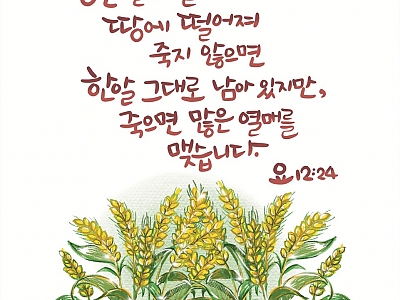 땅에 떨어져
죽지 않으면
한알 그대로 남아 있지만,
죽으면 많은 열매를
맺습니다.
요 12:24